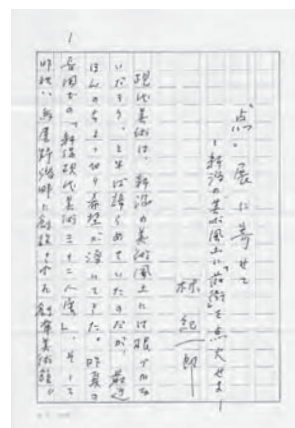 1
“点„展に寄せて
－新潟の美術風土に「前衛」を点火せよ－
林 紀一郎
現代美術は、新潟の美術風土には根づかな
いだろう、と半ば諦らめていたのだが、最近
ほんのちょっ切り希望が湧いてきた。昨夏の
での「新潟現代美術三十二人展」、そして
昨秋、鳥屋野潟畔に創設された創庫美術館